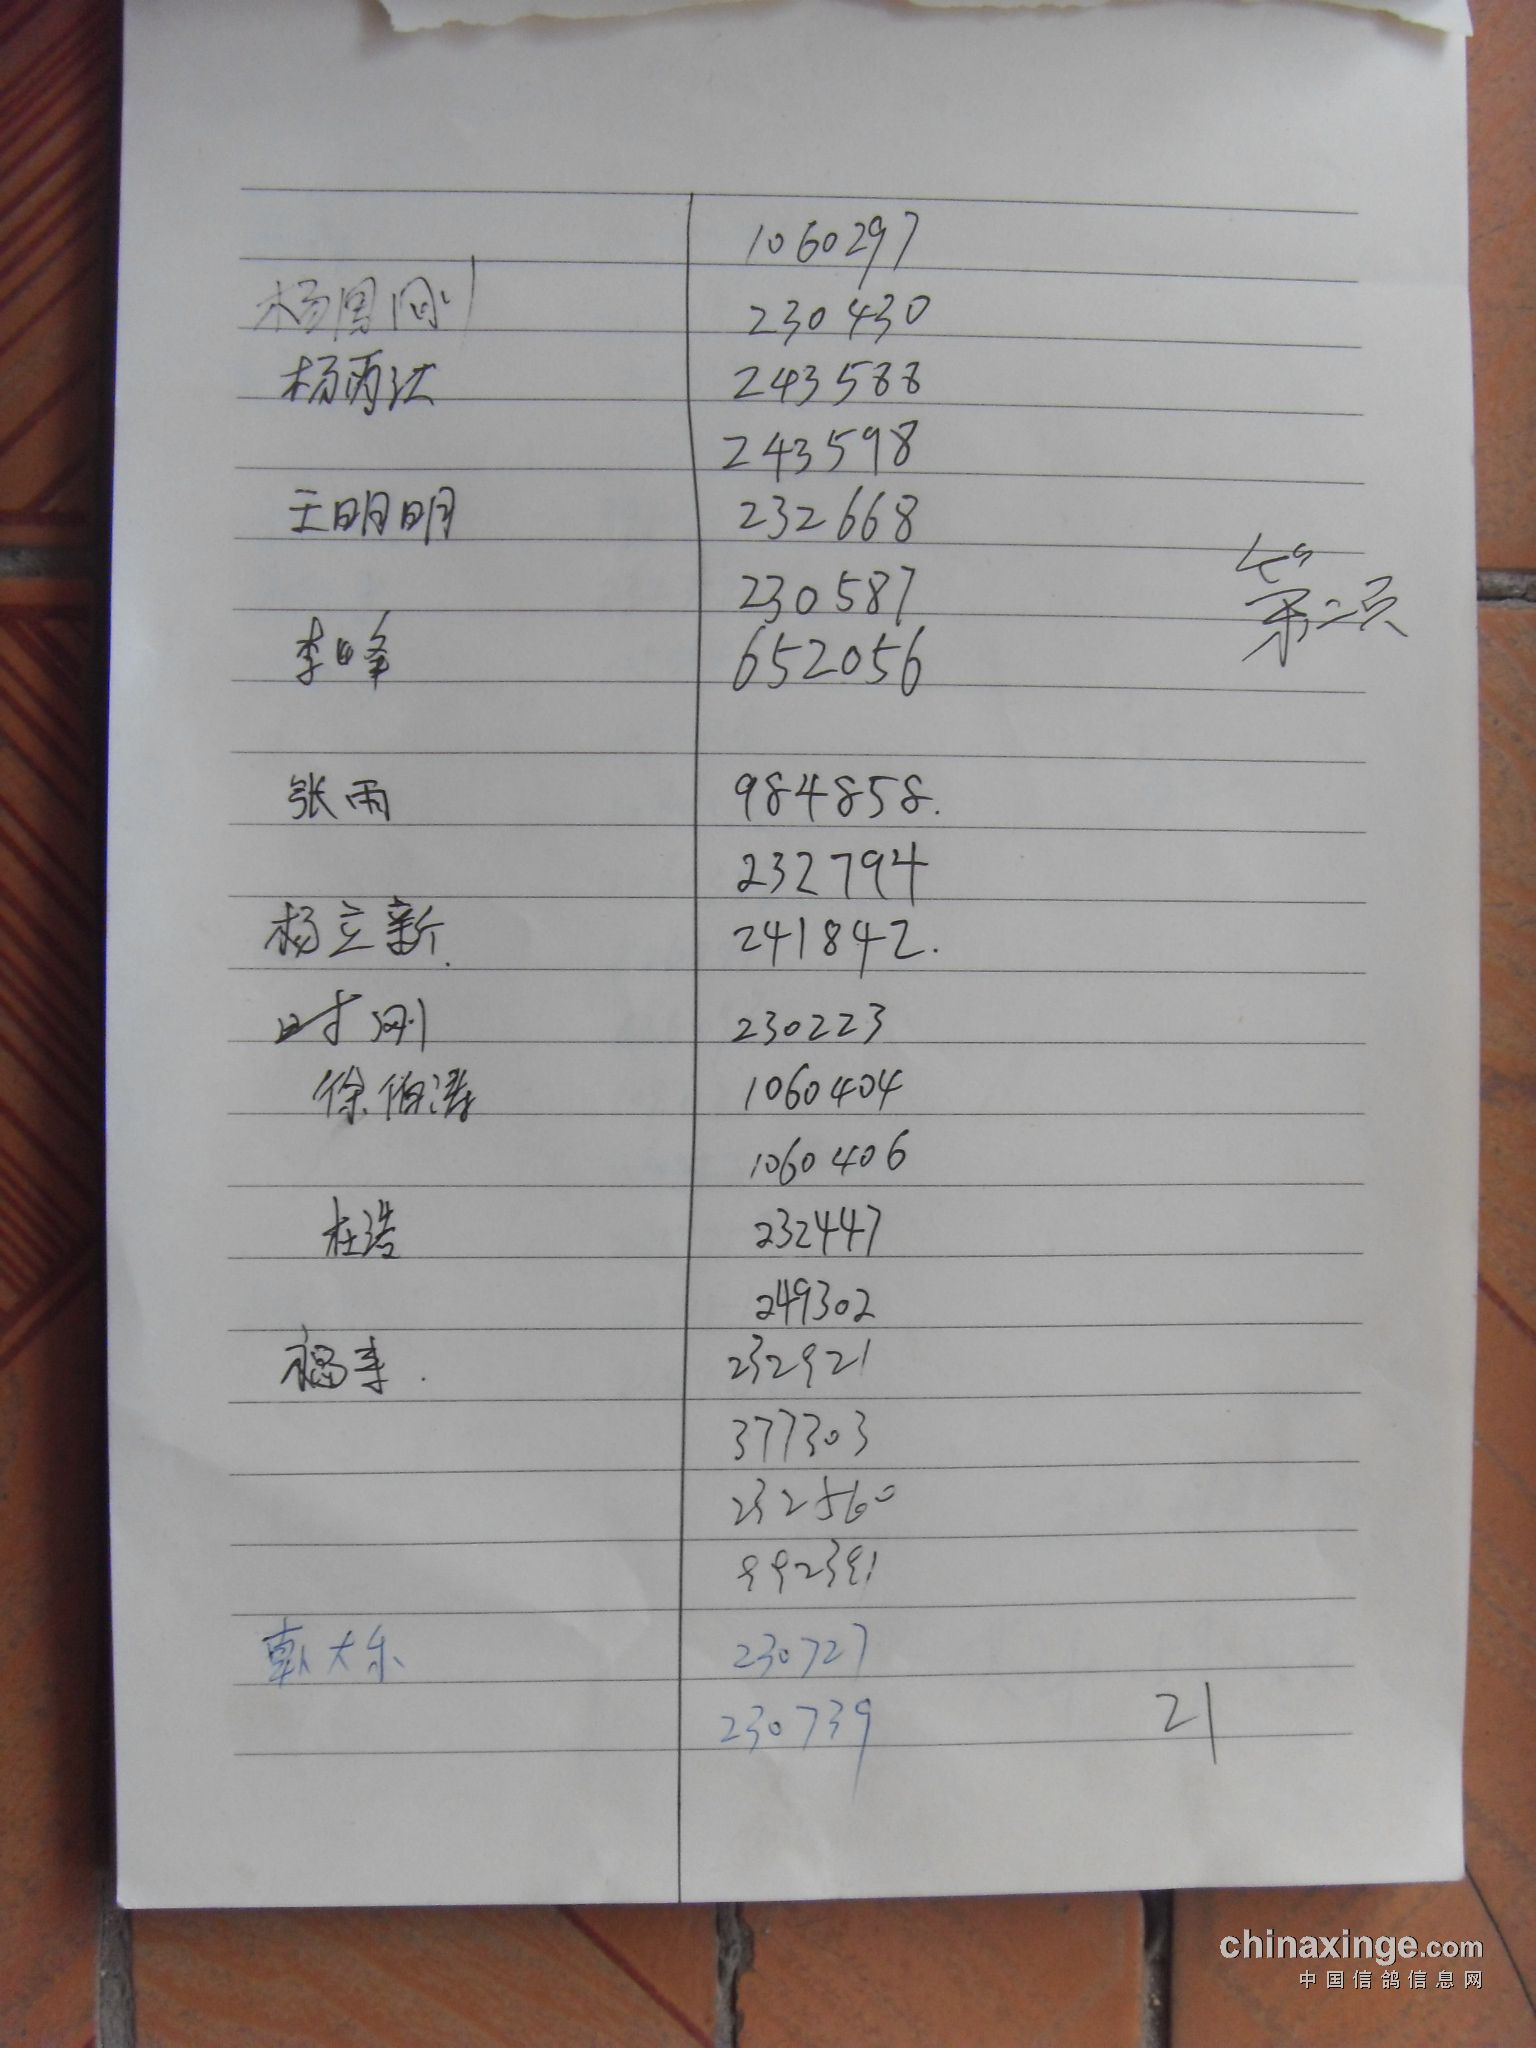 1060297
杨周刚 230430
杨丙江 243588
243598
王明明 232668
230587
第二页
李峰 652056
张雨 984858.
232794
杨立新. 241842.
时刚 230223
徐伯涛 1060404
1060406
杜浩 232447
249302
福来. 232921
377303
232560
992391
韩大乐 230727
230739 21
chinaxinge.com
中国信鸽信息网